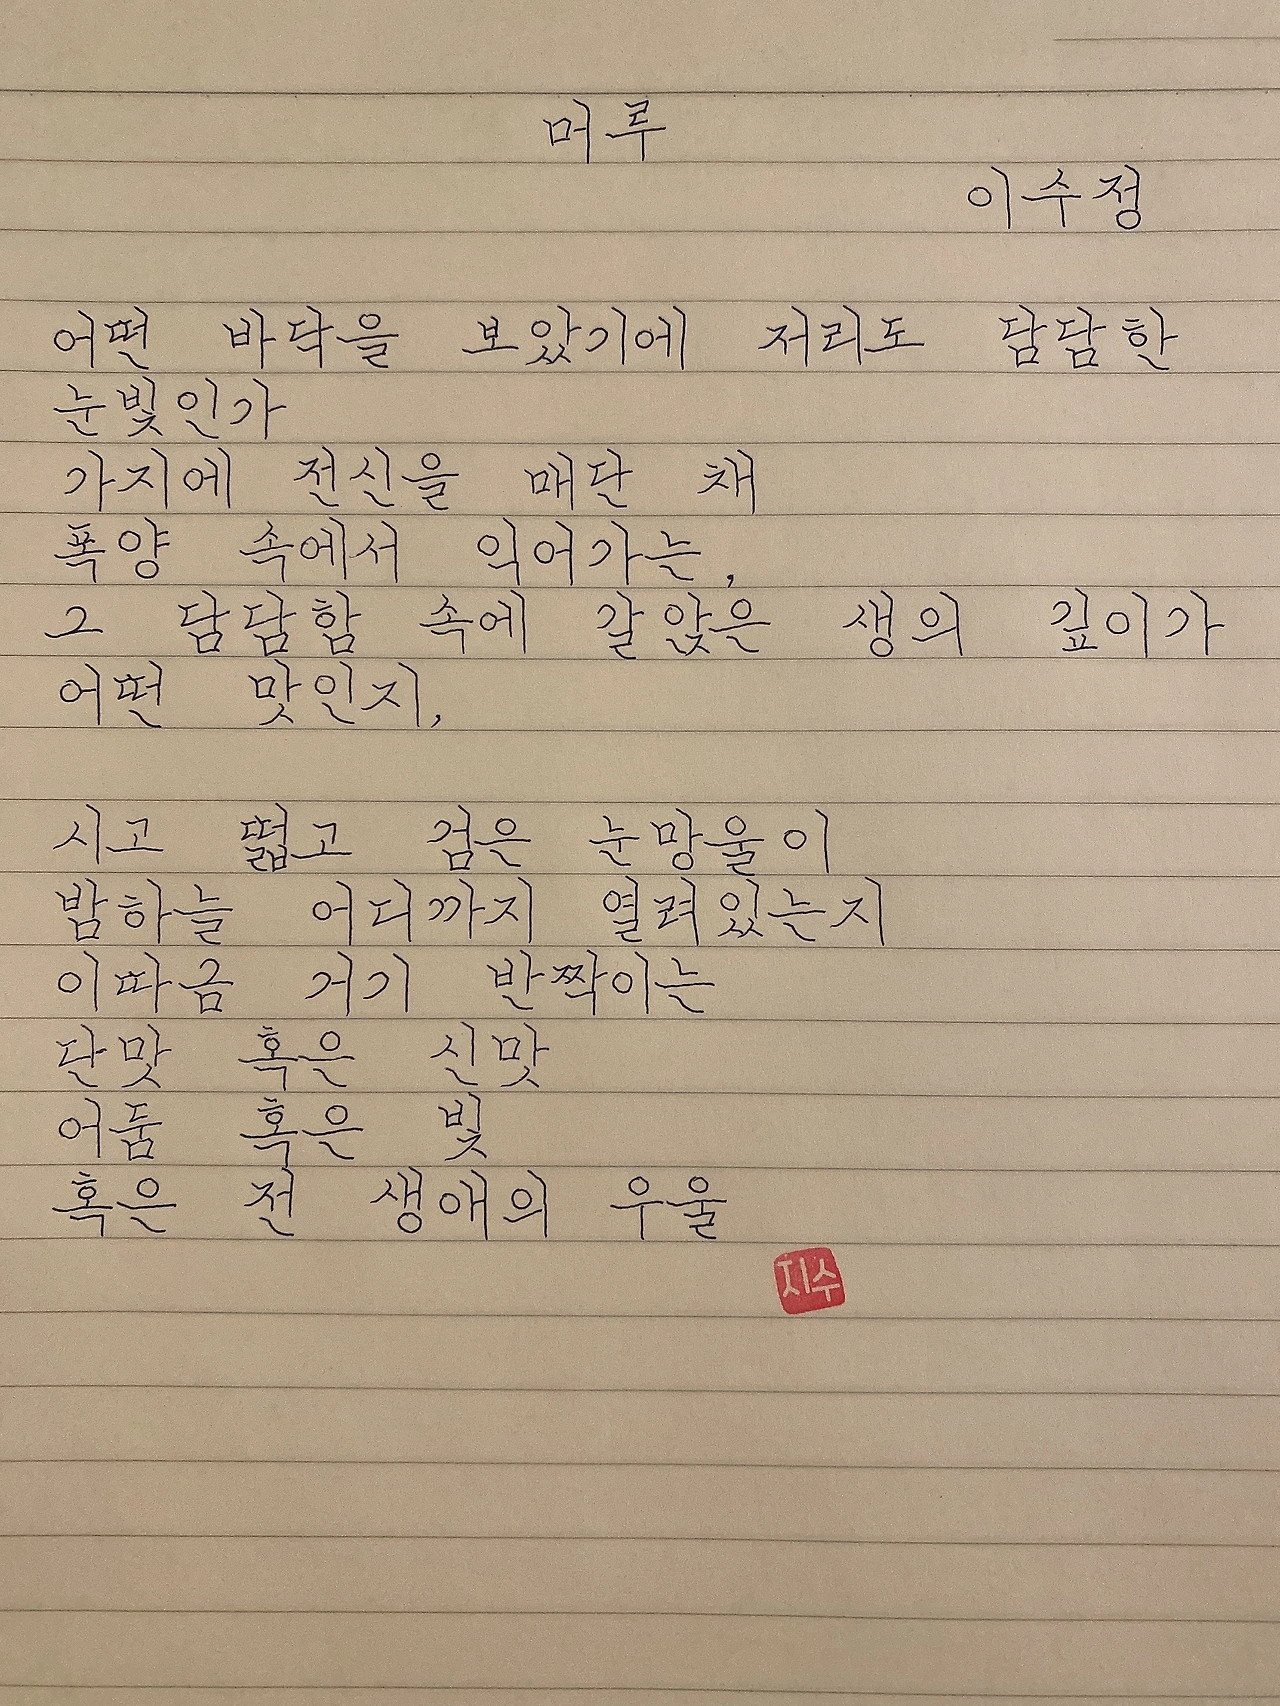 머루
이수정
어떤 바닥을 보았기에 저리도 담담한
눈빛인가
가지에 전신을 매단 채
폭양 속에서 익어가는,
그 담담함 속에 갈앉은 생의 깊이가
어떤 맛인지,
시고 떫고 검은 눈망울이
밤하늘 어디까지 열려있는지
이따금 거기 반짝이는
단맛 혹은 신맛
어둠 혹은 빛
혹은 전 생애의 우울
지수